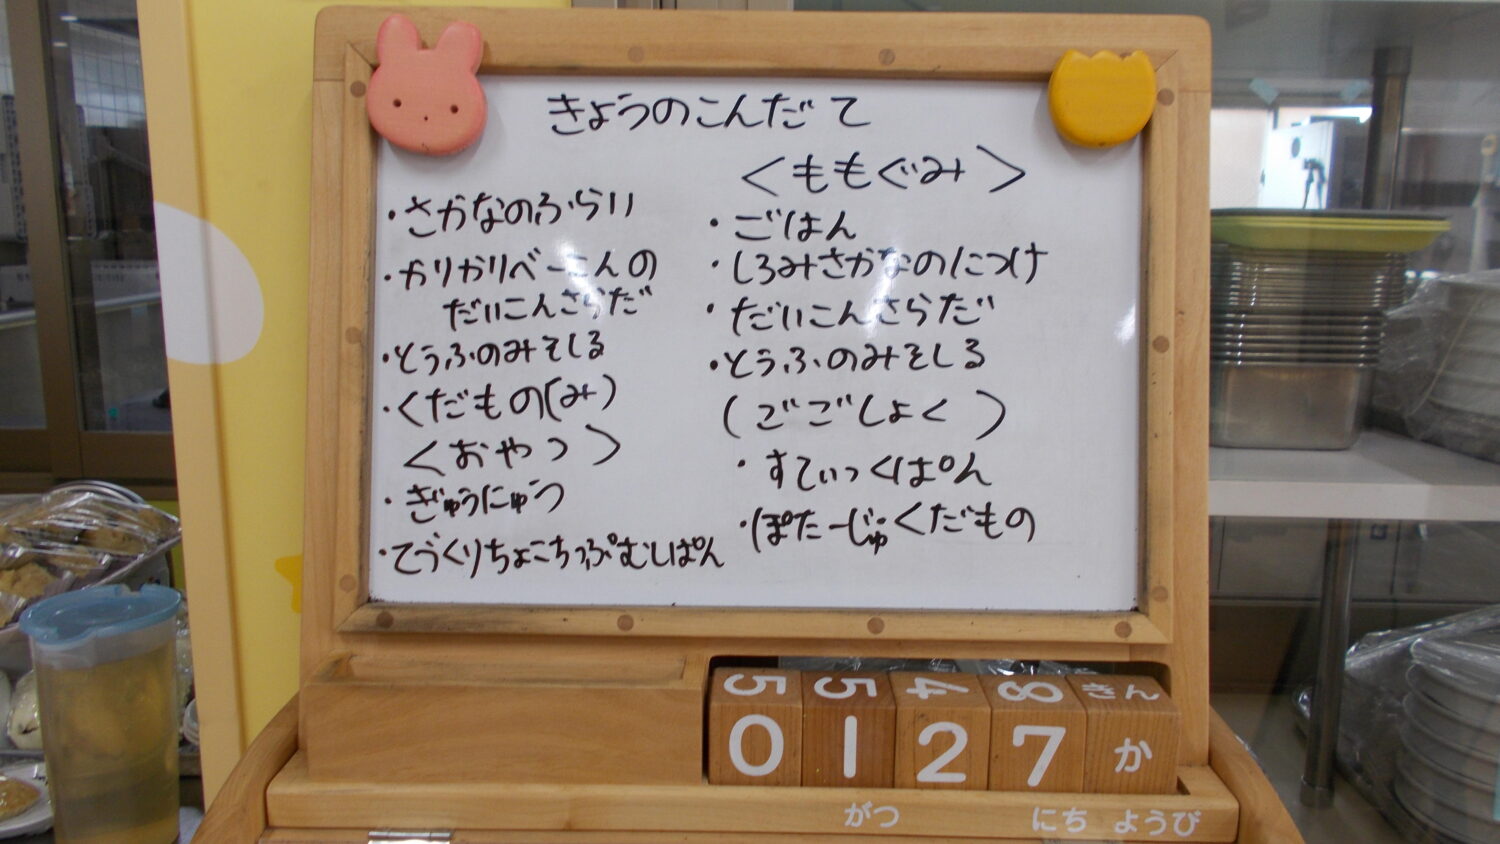 きょうのこんだて
・さかなのふらい
・かりかりべーこんの
だいこんさらだ
・とうふのみそしる
・くだもの(み)
<おやつ>
・ぎゅうにゅう
・てづくりちょこちっぷむしぱん
<ももぐみ>
・ごはん
・しろみさかなのにつけ
・だいこんさらだ
・とうふのみそしる
(ごごしょく)
・すてぃっくぱん
・ぽたーじゅ・くだもの
5 5 4 8 きん
0 1 2 7 か
がつ にち ようび